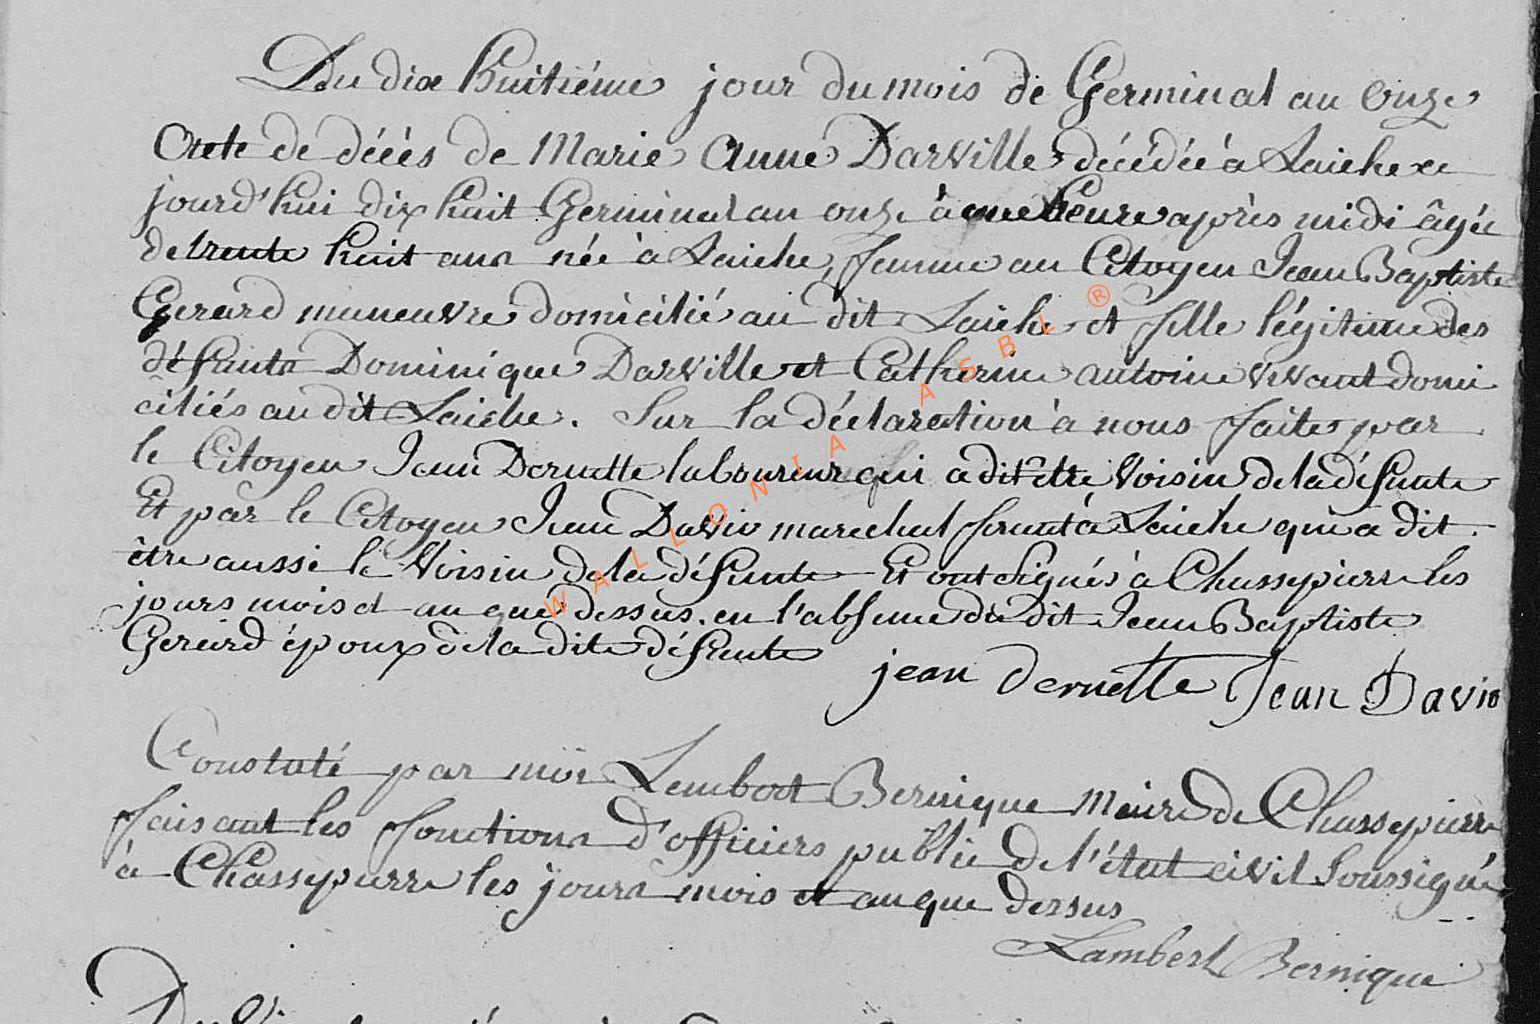 Du dix huitiéme jour du mois de Germinal an onze
Acte de décès de Marie Anne Darville décédée à Laiche ce
jourd'hui dix huit Germinal an onze à une heure après midi âgée
de trente huit ans née à Laiche, femme au Citoyen Jean Baptiste
Gerard maneuvre domicilié au dit Laiche et fille légitime des
défunts Dominique Darville et Catherine antoine vivant domi
ciliés au dit Laiche. Sur la déclaration à nous faite par
le Citoyen Jean Dernette laboureur qui a dit etre Voisin de la défunte
Et par le Citoyen Jean David marechal ferant à Laiche qui a dit
être aussi le Voisin de la défunte Et ont signés à Chassepierre les
jours mois et an que dessus. en l'absence du dit Jean Baptiste
Gerard époux de la dite défunte jean dernette Jean David
Constaté par moi Lambert Bernique Maire de Chassepierre
faisant les fonctions d'officiers public de l'état civil Soussigné
à Chassepierre les jours mois et an que dessus
Lambert Bernique
WALLONIA ASBL ®